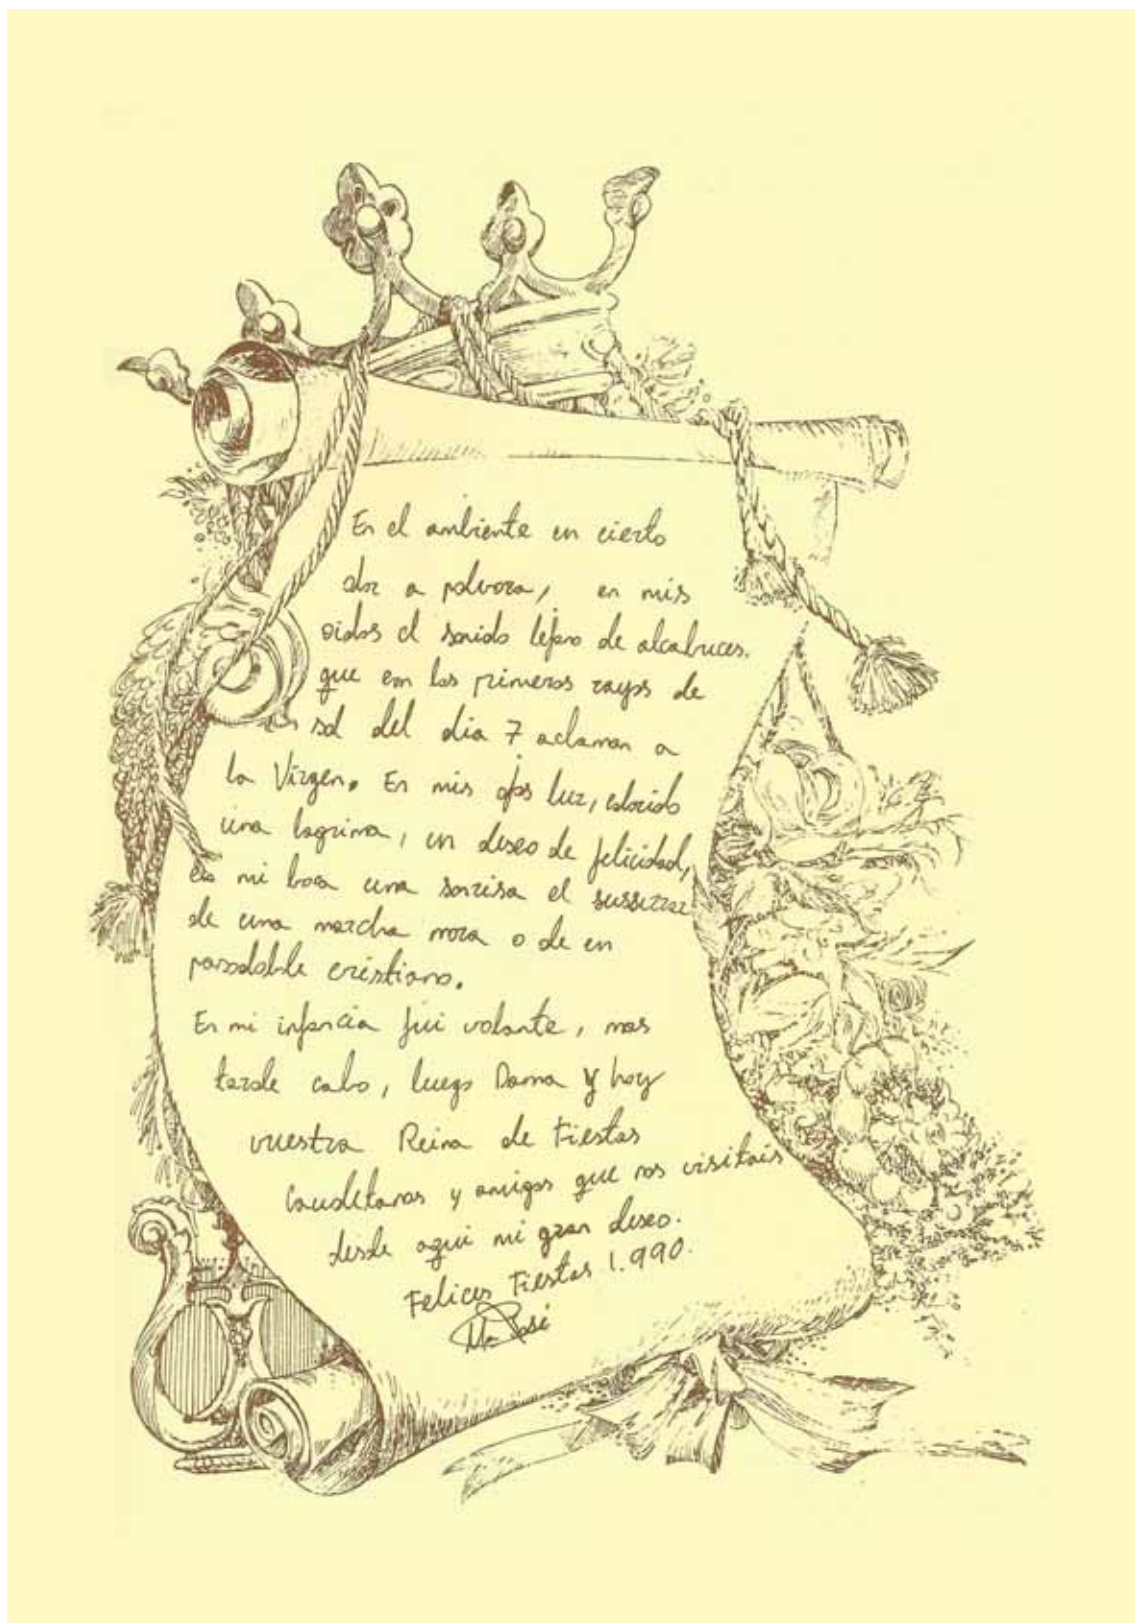 En el ambiente un cierto
olor a polvora, en mis
oidos el sonido lejano de alcabuces.
que con los primeros rayos de
sol del dia 7 aclaman a
la Virgen. En mis ojos luz, colorido
una lagrima, un deseo de felicidad,
en mi boca una sonrisa el sussurrar
de una marcha mora o de un
pasodoble cristiano.
En mi infancia fui volante, mas
tarde cabo, luego Dama y hoy
vuestra Reina de Fiestas
Caudetanos y amigos que nos visitais
desde aqui mi gran deseo.
Felices Fiestas 1.990.
Mª José